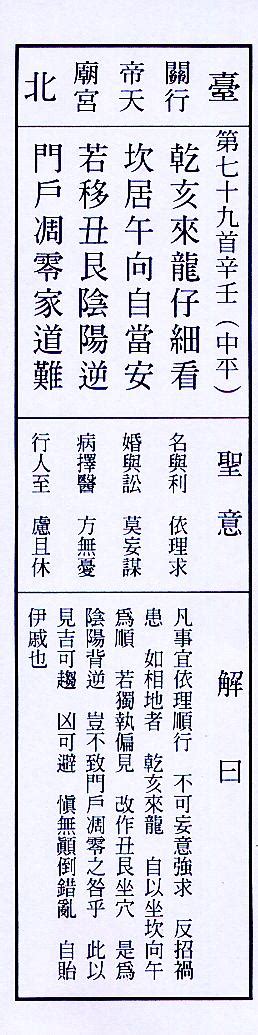 臺北
關行
帝天
廟宮
第七十九首辛壬（中平）
乾亥來龍仔細看
坎居午向自當安
若移丑艮陰陽逆
門戶凋零家道難
聖意
名與利　依理求
婚與訟　莫妄謀
病擇醫　方無憂
行人至　慮且休
解曰
凡事宜依理順行　不可妄意強求　反招禍
患　如相地者　乾亥來龍　自以坐坎向午
爲順　若獨執偏見　改作丑艮坐穴　是爲
陰陽背逆　豈不致門戶凋零之咎乎　此以
見吉可趨　凶可避　愼無顚倒錯亂　自貽
伊戚也